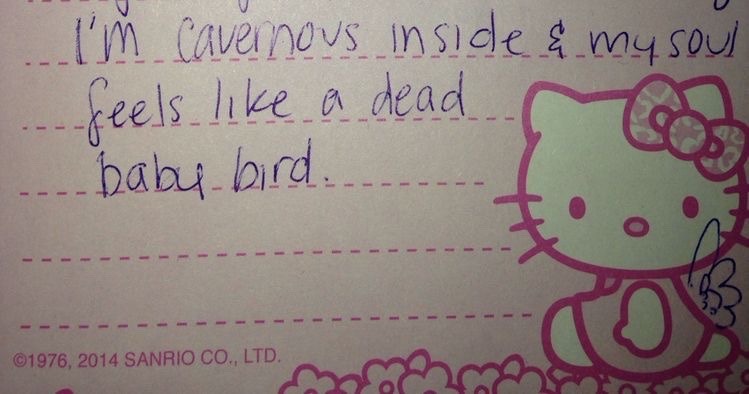 I'm cavernous inside & my soul
feels like a dead
baby bird.
©1976, 2014 SANRIO CO., LTD.